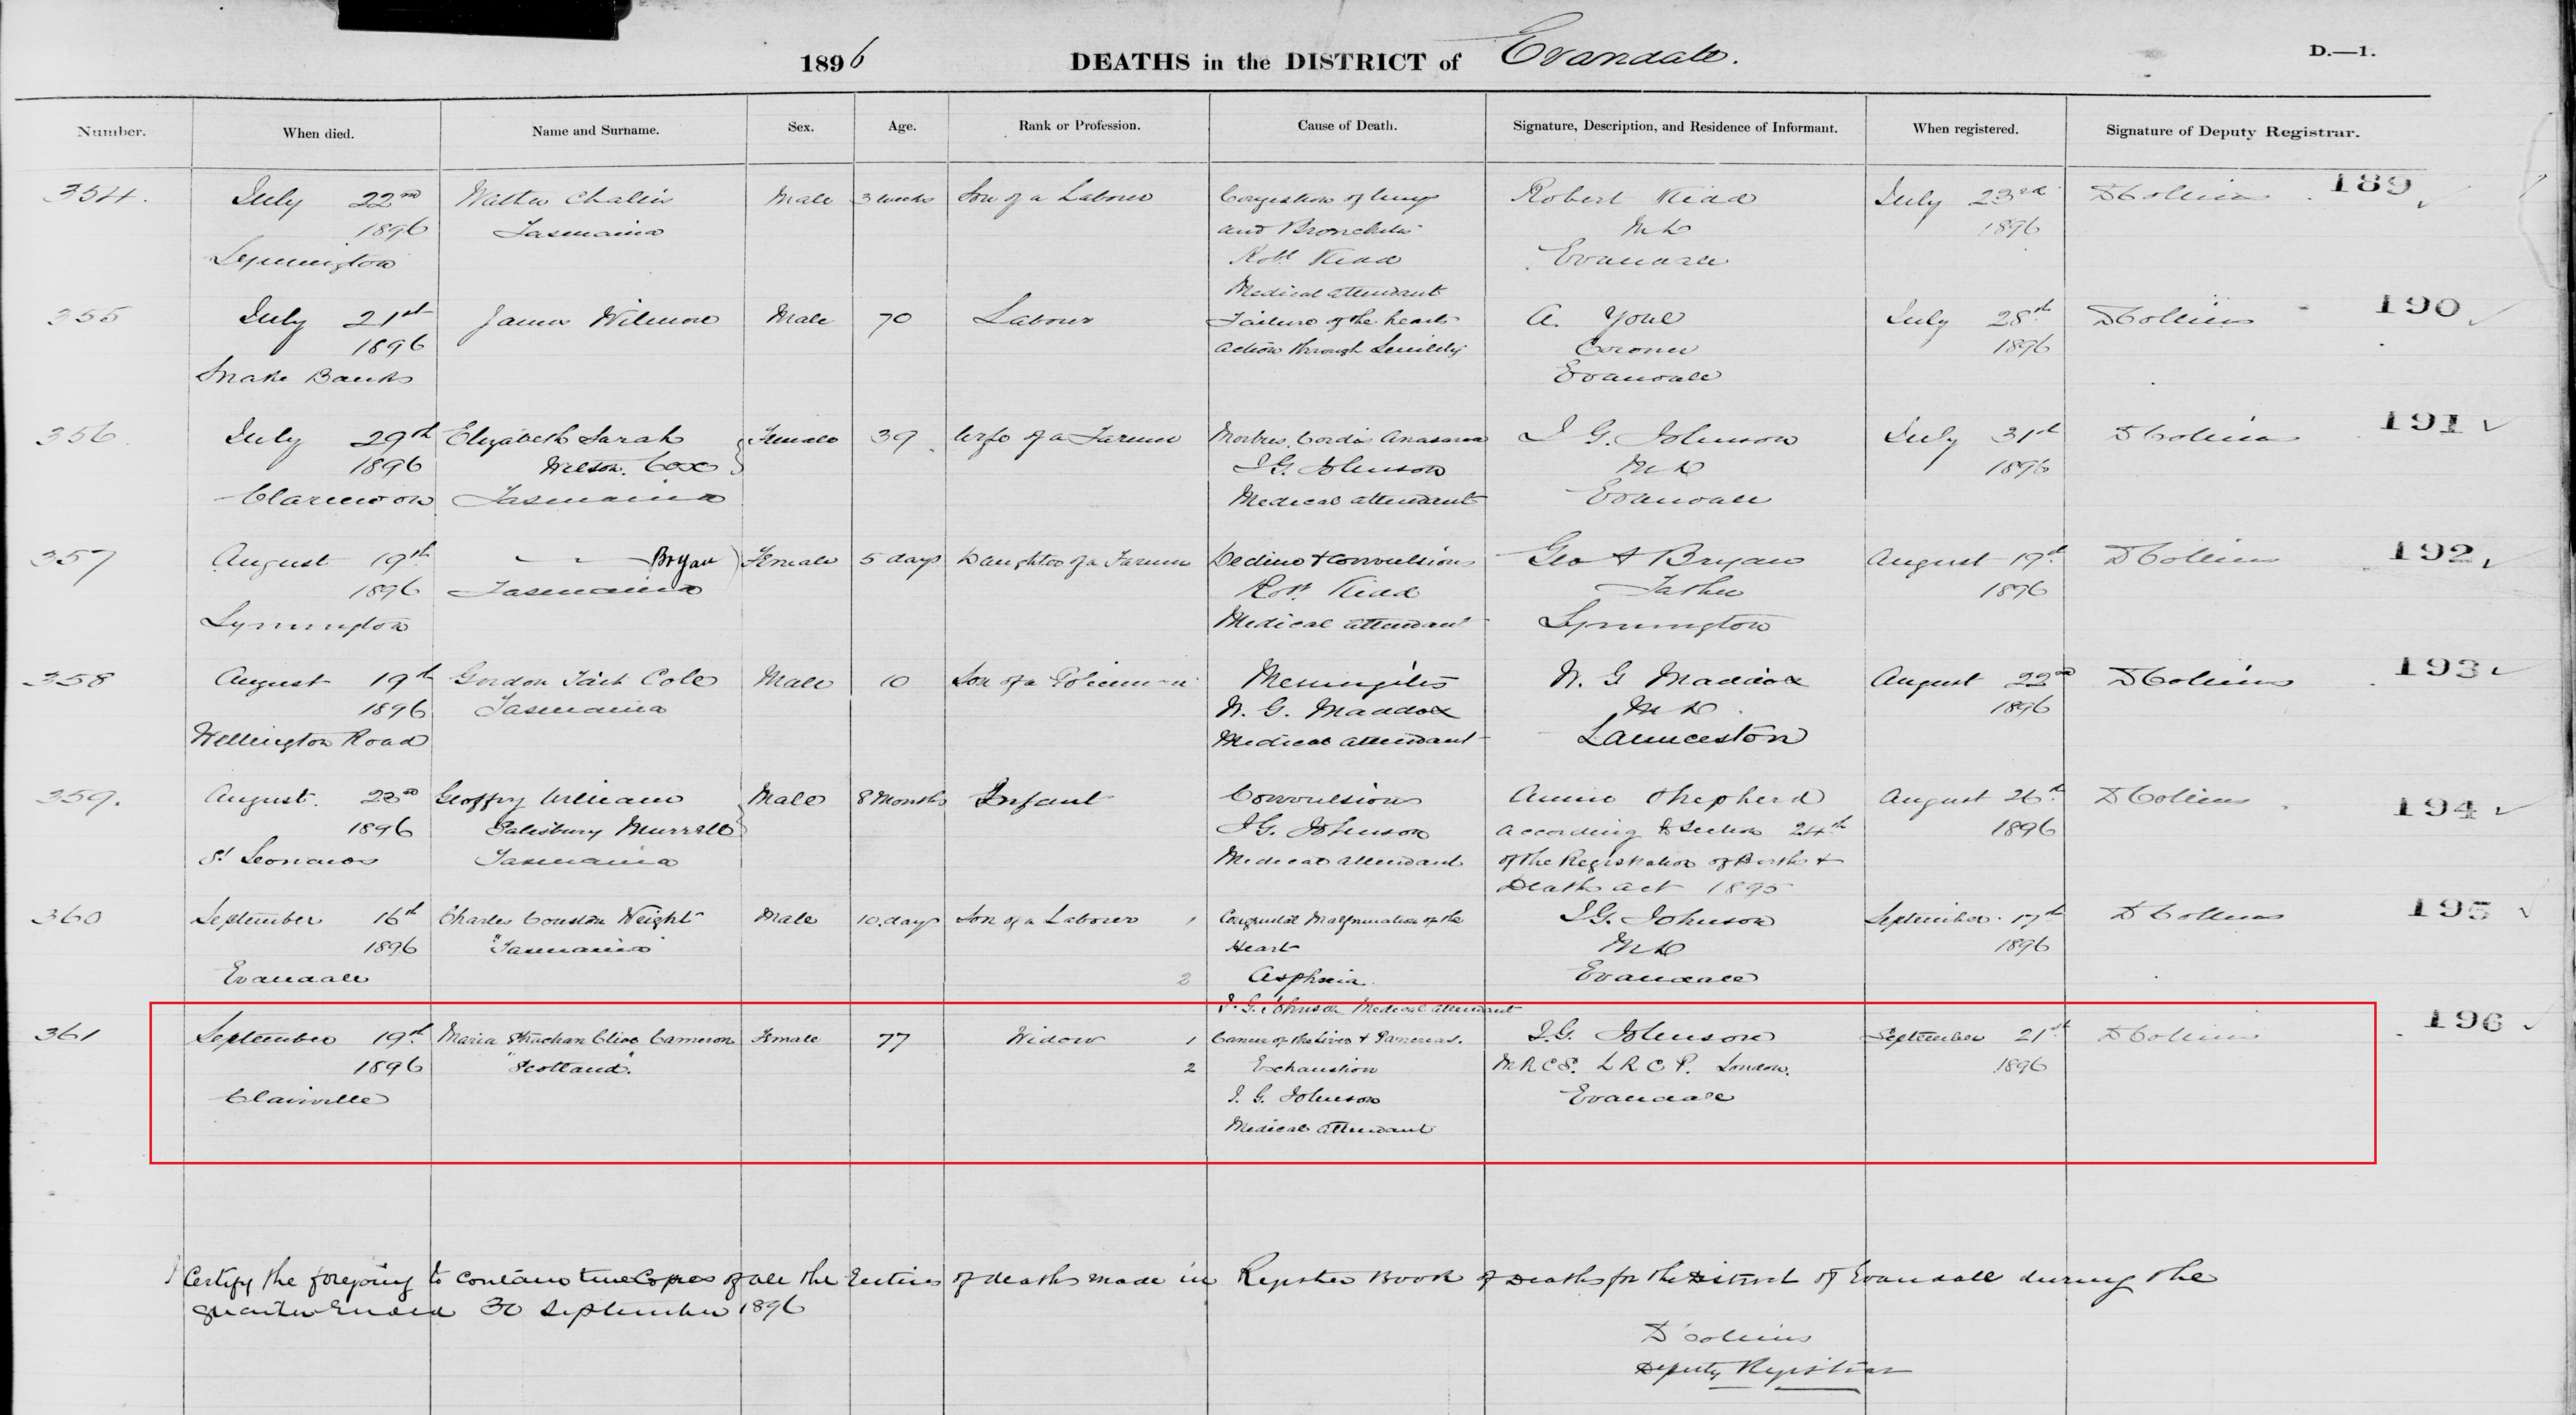 1896 DEATHS in the DISTRICT of Evandale. D.—1.
Number. When died. Name and Surname. Sex. Age. Rank or Profession. Cause of Death. Signature, Description, and Residence of Informant. When registered. Signature of Deputy Registrar.
354. July 22nd Walter Male 3 weeks Son of a Labourer Congestion of lungs Robert Kidd July 23rd D Collins 189
1896 Tasmania and Bronchitis M D 1896
Lymington Robt Kidd Evandale
Medical attendant
355 July 21st James Male 70 Labourer Failure of the hearts A. Youl July 28th D Collins 190
1896 action through Senility Coroner 1896
Snake Banks Evandale
356 July 29th Elizabeth Sarah Female 39 Wife of a Farmer Morbus Cordis Anasarca J G. Johnson July 31st D Collins 191
1896 Wilson Cox J G. Johnson M D 1896
Clarendon Tasmania Medical attendant Evandale
357 August 19th — — Bryan Female 5 days Daughter of a Farmer Decline & Convulsions Geo A Bryan August 19th D Collins 192
1896 Tasmania Robt Kidd Father 1896
Lymington Medical attendant Lymington
358 August 19th Gordon Cole Male 10 Son of a Policeman Meningitis W. G Maddox August 22nd D Collins 193
1896 Tasmania W. G. Maddox M D 1896
Wellington Road Medical attendant Launceston
359. August 23rd Geoffry William Male 8 Months Infant Convulsions Annie Shepherd August 26th D Collins 194
1896 Salisbury Murrell J G. Johnson according to Section 24th 1896
St Leonards Tasmania Medical attendant of the Registration of Births &
Deaths Act 1895
360 September 16th Charles Wright Male 10 days Son of a Labourer 1 Congenital Malformation of the J G. Johnson September 17th D Collins 195
1896 "Tasmania" Heart M D 1896
Evandale 2 Evandale
J. G. Johnson Medical attendant
361 September 19th Maria Strachan Clive Cameron Female 77 Widow 1 Cancer of the Liver & Pancreas. J. G. Johnson September 21st D Collins 196
1896 "Scotland". 2 Exhaustion M R C S. L R C P. London. 1896
Clairville J. G. Johnson Evandale
Medical attendant
I Certify the foregoing to contain true Copies of all the Entries of deaths made in Register Book of Deaths for the District of Evandale during the
quarter Ended 30 September 1896
D Collins
Deputy Registrar